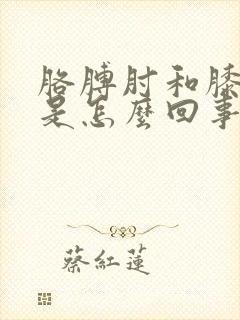 胳膊肘和膝
是怎麼回事
蔡紅蓮